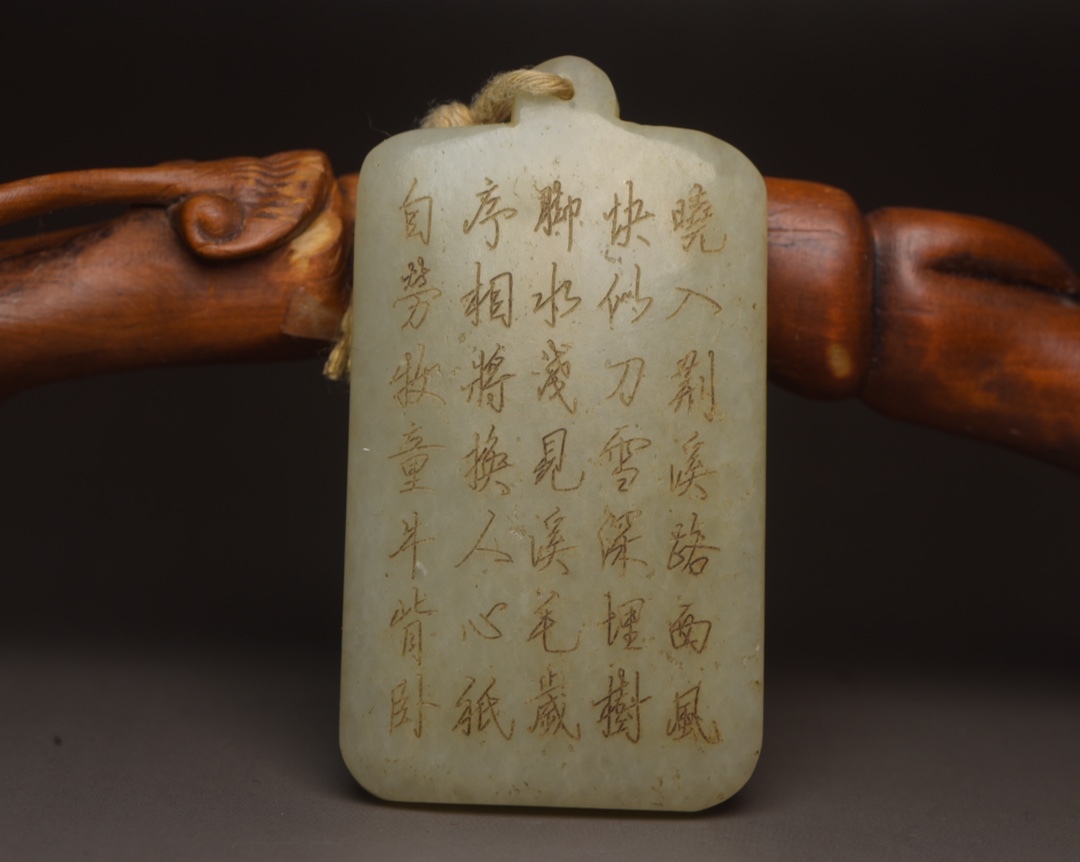 曉入荆溪路西風
快似刀雪深埋樹
脚水淺見溪毛歲
序相將換人心祇
自勞牧童牛背卧